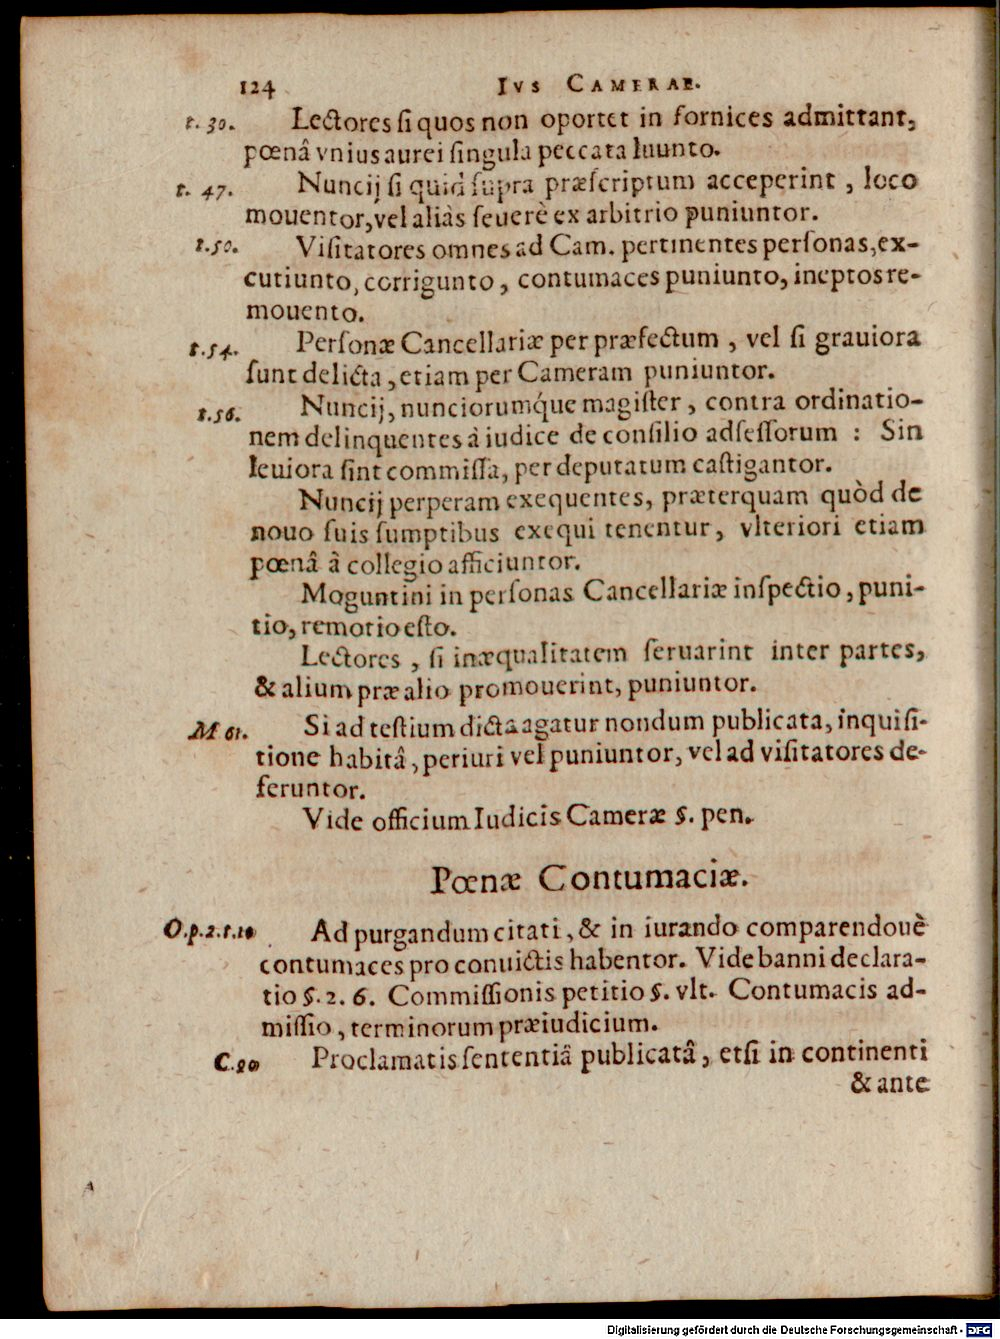 124 IVS CAMERAE.
t. 30. Lectores ſi quos non oportet in fornices admittant,
pœnâ vnius aurei ſingula peccata luunto.
t. 47. Nuncij ſi quid ſupra præſcriptum acceperint, loco
mouentor, vel aliàs ſeuerè ex arbitrio puniuntor.
t. 50. Viſitatores omnes ad Cam. pertinentes perſonas, ex-
cutiunto, corrigunto, contumaces puniunto, ineptos re-
mouento.
t. 54. Perſonæ Cancellariæ per præfectum, vel ſi grauiora
ſunt delicta, etiam per Cameram puniuntor.
t. 56. Nuncij, nunciorumq́ue magiſter, contra ordinatio-
nem delinquentes à iudice de conſilio adſeſſorum : Sin
leuiora ſint commiſſa, per deputatum caſtigantor.
Nuncij perperam exequentes, præterquam quòd de
nouo ſuis ſumptibus exequi tenentur, vlteriori etiam
pœnâ à collegio afficiuntor.
Moguntini in perſonas Cancellariæ inſpectio, puni-
tio, remotio eſto.
Lectores, ſi inæqualitatem ſeruarint inter partes,
& alium præ alio promouerint, puniuntor.
M 61. Si ad teſtium dicta agatur nondum publicata, inquiſi-
tione habitâ, periuri vel puniuntor, vel ad viſitatores de-
feruntor.
Vide officium Iudicis Cameræ §. pen.
Pœnæ Contumaciæ.
O.p.2.t.10 Ad purgandum citati, & in iurando comparendouè
contumaces pro conuictis habentor. Vide banni declara-
tio §. 2. 6. Commiſſionis petitio §. vlt. Contumacis ad-
miſſio, terminorum præiudicium.
C. 90 Proclamatis ſententiâ publicatâ, etſi in continenti
& ante
Digitalisierung gefördert durch die Deutsche Forschungsgemeinschaft - DFG